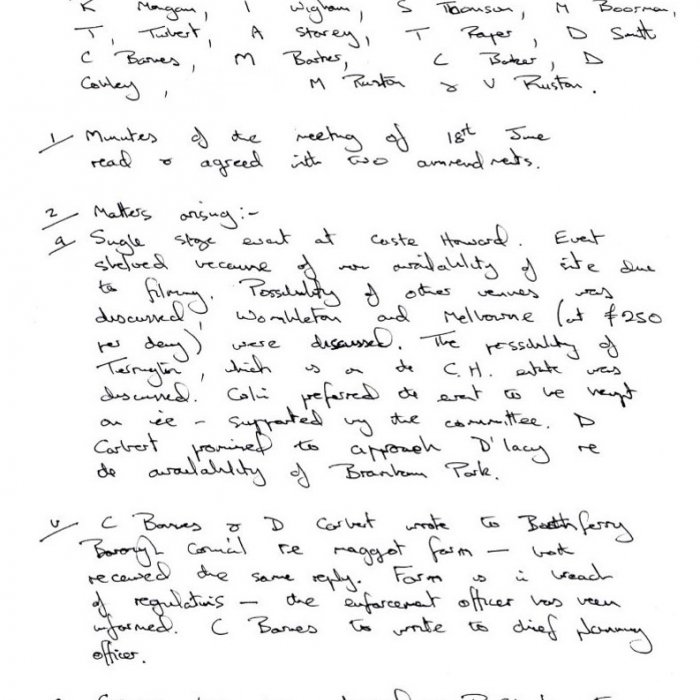 K Mangan, I Wigham, S Thomson, M Boorman,
T, Turbert, A Storey, T Raper, D Smith
C Barnes, M Barker, C Baker, D
Conley, M Ruston & V Ruston.
1/ Minutes of the meeting of 18st June
read & agreed with two ammendments.
2/ Matters arising:-
a/ Single stage event at Caste Howard. Event
shelved because of non availability of site due
to filming. Possibility of other venues was
discussed, Wombleton and Melbourne (at £250
per day) were discussed. The possibility of
Terrington, which is on the C.H. estate was
discussed. Colin preferred the event to be kept
on ice - supported by the committee. D
Corbert promised to approach D'lacy re
the availability of Bramham Park.
b/ C Barnes & D Corbert wrote to Boothferry
Borough Council re maggot farm - both
received the same reply. Farm is in breach
of regulations - the enforcement officer has been
informed. C Barnes to write to chief planning
officer.